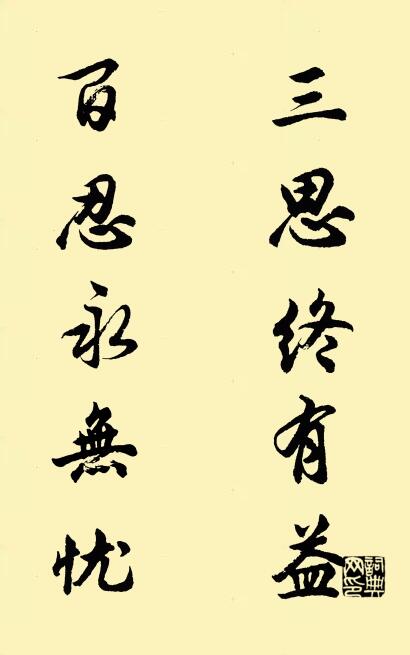 三思终有益
百忍永無忧
詞典网印